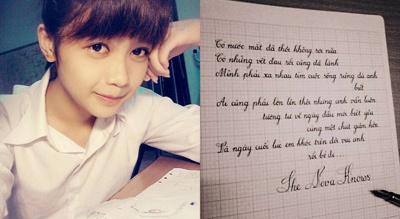 Có nước mắt đã thôi không rơi nữa
Có những vết đau rồi cũng đã lành
Mình phải xa nhau tìm cuộc sống riêng dù anh
biết
Ai cũng phải lớn lên thôi nhưng anh vẫn luôn
tương tư về ngày đầu mới biết yêu
cùng một chút giận hờn
Và ngày cuối lúc em khóc trên đôi vai anh
rồi bỏ đi...
The Nova Knows